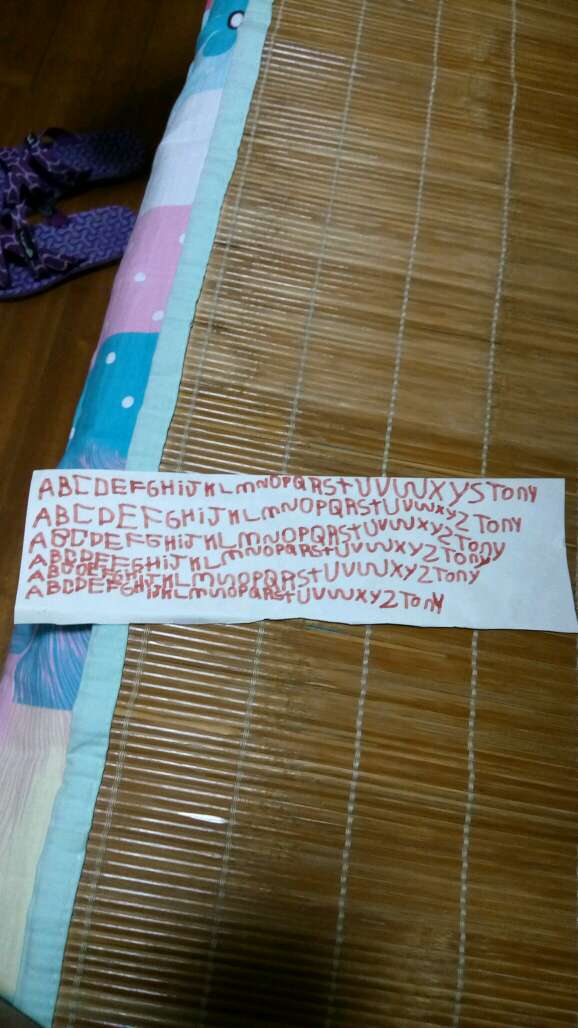 ABCDEFGHiJKLmNOPQRStUVWXYS Tony
ABCDEFGHiJKLmNOPQRStUVWXYZ Tony
ABCDEFGHiJKLmNOPQRStUVWXYZ Tony
ABCDEFGHiJKLmNOPQRStUVWXYZ Tony
ABCDEFGHiJKLmNOPQRStUVWXYZ Tony
ABCDEFGHiJKLmNOPQRStUVWXYZ Tony